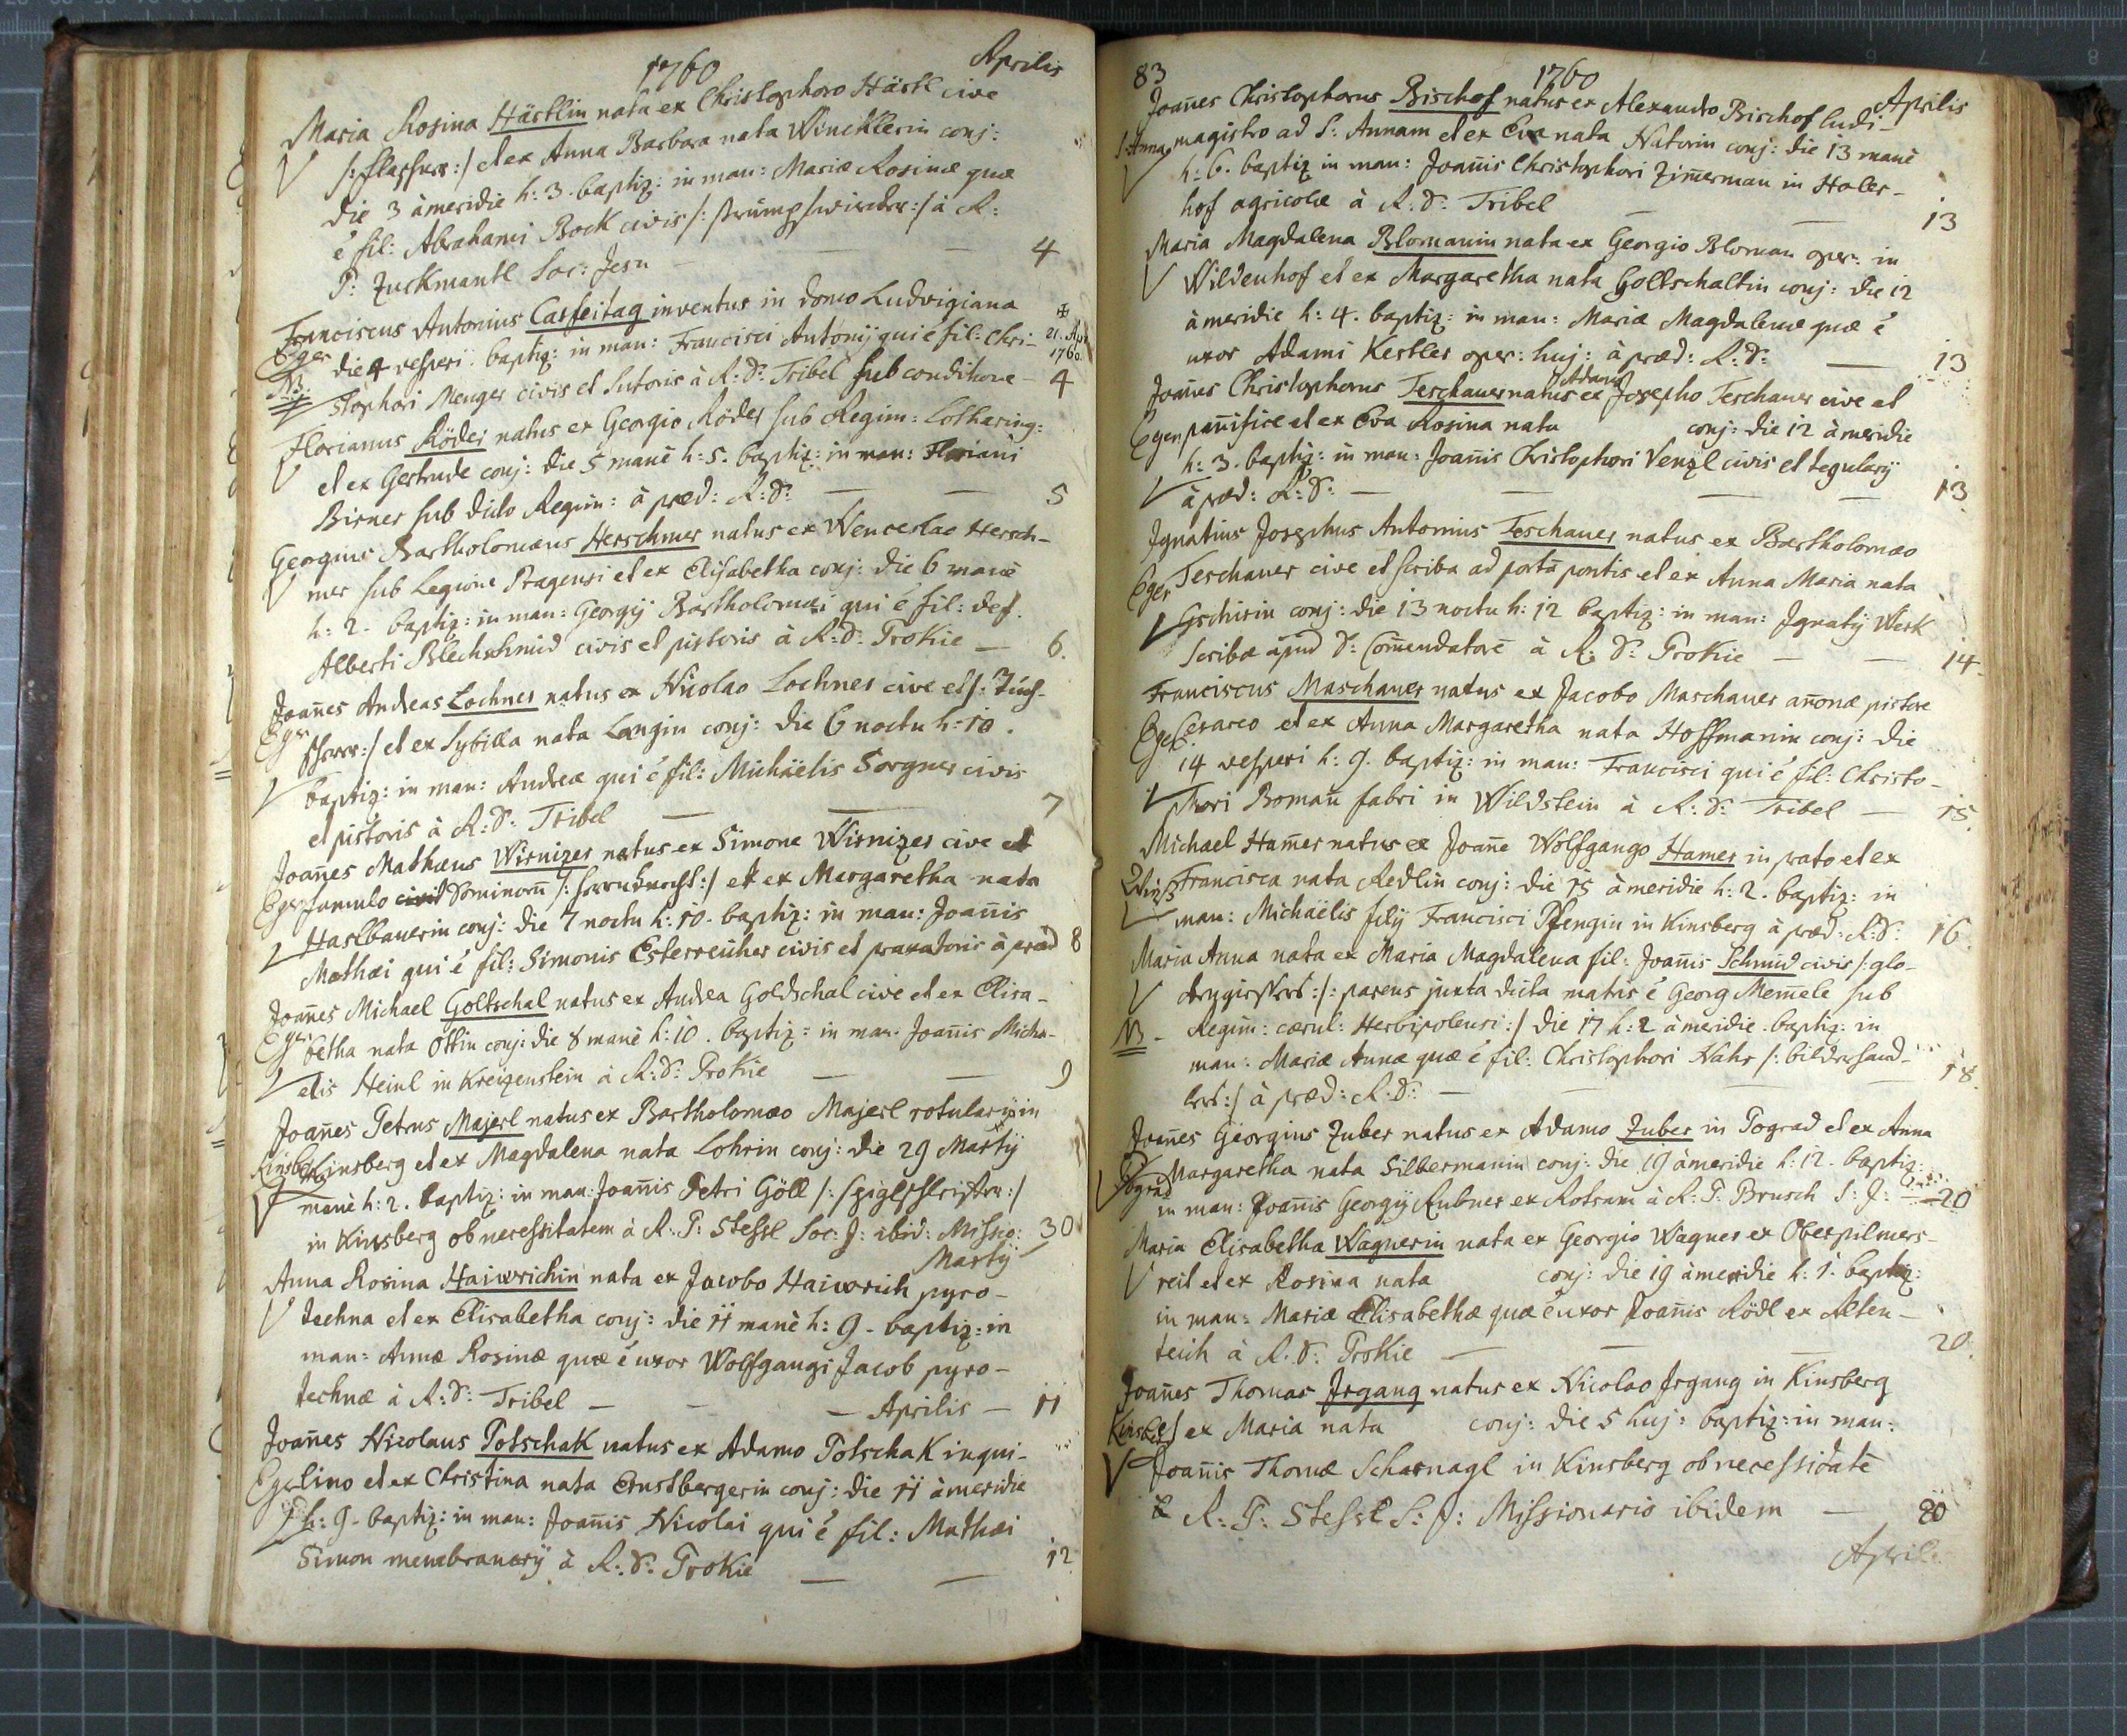 1760 Aprilis
Maria Rosina Härtlin nata ex Christophoro Härtl cive
/: :/ et ex Anna Barbara nata Wincklerin conj:
die 3 à meridie h: 3. baptiz: in man: Mariæ Rosinæ quæ
é fil: Abrahami Bock civis /: strümpfwircker :/ à R:
P: Zuckmantl Soc: Jesu — — 4
Franciscus Antonius Carfeitag inventus in domo Ludvigiana
Eger die 4 vesperi baptiz: in man: Francisci Antonij qui é fil: Chri- 21. Apr 1760.
NB. stophori Menger civis et sutoris à R: D: Tribel sub conditione — 4
Florianus Röder natus ex Georgio Röder sub Regim: Lotharing:
et ex Gertrude conj: die 5 manè h: 5. baptiz: in man: Floriani
Birner sub dicto Regim: à præd: R: D: — — 5
Georgius Bartholomæus Herschmer natus ex Wenceslao Hersch-
mer sub Legione Pragensi et ex Elisabetha conj: die 6 manè
h: 2. baptiz: in man: Georgij Bartholomæi qui é fil: def.
Alberti Blechschmid civis et pistoris à R: D: Trokie — 6.
Joañes Andreas Lochner natus ex Nicolao Lochner cive et /: Tuch-
Eger scherer :/ et ex Sybilla nata Langin conj: die 6 noctu h: 10.
baptiz: in man: Andreæ qui é fil: Michäelis Sorgner civis
et pistoris à R: D: Tribel — — 7
Joañes Mathæus Wirnizer natus ex Simone Wirnizer cive et
Eger famulo Dominorũ /: :/ et ex Margaretha nata
Haslbauerin conj: die 7 noctu h: 10. baptiz: in man: Joañis
Mathæi qui é fil: Simonis Esterreicher civis et praxatoris à præd 8
Joañes Michael Goltschal natus ex Andrea Goldschal cive et ex Elisa-
Eger betha nata Ottin conj: die 8 manè h: 10. baptiz: in man: Joañis Micha-
elis Heinl in Kreizenstein à R: D: Trokie — — 9
Joañes Petrus Majerl natus ex Bartholomæo Majerl rotularij in
Kinsberg Kinsberg et ex Magdalena nata Lohrin conj: die 29 Martij
manè h: 2. baptiz: in man: Joañis Petri Göll /: :/
in Kinsberg ob necessitatem à R: P: Stessl Soc: J: ibid: Missio: 30
Martij
Anna Rosina Hainrichin nata ex Jacobo Hainrich pyro-
techna et ex Elisabetha conj: die 11 manè h: 9. baptiz: in
man: Annæ Rosinæ quæ é uxor Wolfgangi Jacob pyro-
technæ à R: D: Tribel — — — Aprilis — 11
Joañes Nicolaus Potschak natus ex Adamo Potschak inqui-
Eger lino et ex Christina nata Ernstbergerin conj: die 11 à meridie
h: 9. baptiz: in man: Joañis Nicolai qui é fil: Mathæi
Simon membranarij à R: D: Trokie — — 12
83 1760 Aprilis
Joañes Christophorus Bischof natus ex Alexandro Bischof ludi-
S: Anna magistro ad S: Annam et ex Eva nata Natorin conj: die 13 manè
h: 6. baptiz in man: Joañis Christophori Zimerman in Haler-
hof agricolæ à R: D: Tribel — — 13
Maria Magdalena Blomanin nata ex Georgio Bloman oper: in
Wildenhof et ex Margaretha nata Goltschaltin conj: die 12
à meridie h: 4. baptiz: in man: Mariæ Magdalenæ quæ é
uxor Adami Kestler oper: huj: à præd: R: D: — 13
Joañes Christophorus Teschauer natus ex Adamo Josepho Teschauer cive et
Eger pañifice et ex Eva Rosina nata conj: die 12 à meridie
h: 3. baptiz: in man: Joañis Christophori Venzl civis et tegularij
à præd: R: D: — — — — 13
Ignatius Josephus Antonius Teschauer natus ex Bartholomæo
Eger Teschauer cive et scriba ad portã pontis et ex Anna Maria nata
Gschirin conj: die 13 noctu h: 12 baptiz: in man: Ignatij Werk
scribæ apud D: Comendatorẽ à R: D: Trokie — — 14.
Franciscus Maschauer natus ex Jacobo Maschauer añonæ pistore
Eger Cesareo et ex Anna Margaretha nata Hoffmanin conj: die
14 vesperi h: 9. baptiz: in man: Francisci qui é fil: Christo-
phori Romañ fabri in Wildstein à R: D: Tribel — 15.
Michael Hamer natus ex Joañe Wolfgango Hamer in prato et ex
Francisca nata Redlin conj: die 15 à meridie h: 2. baptiz: in
man: Michäelis filij Francisci Pfengin in Kinsberg à præd: R: D: 16.
Maria Anna nata ex Maria Magdalena fil: Joañis Schmid civis /: glo-
:/: parens juxta dicta matris é Georg Memele sub
NB. Regim: cærul: Herbipolensi :/ die 17 h: 2 à meridie baptiz: in
man: Mariæ Annæ quæ é fil: Christophori Nahr /: bilderhand-
:/ à præd: R: D: — — — — 18.
Joañes Georgius Zuber natus ex Adamo Zuber in Pograd et ex Anna
Pograd Margaretha nata Silbermanin conj: die 19 à meridie h: 12. baptiz:
in man: Joañis Georgij Rubner ex Rotsam à R: P: Brusch S: J: — 20
Maria Elisabetha Wagnerin nata ex Georgio Wagner ex Oberpilmers-
reit et ex Rosina nata conj: die 19 à meridie h: 1. baptiz:
in man: Mariæ Elisabethæ quæ é uxor Joañis Rödl ex Alten-
teich à R: D: Trokie — — — 20.
Joañes Thomas Irgang natus ex Nicolao Irgang in Kinsberg
Kinsbe et ex Maria nata conj: die 5 huj: baptiz: in man:
Joañis Thomæ Scharnagl in Kinsberg ob necessitatẽ
à R: P: Stessl S: J: Missionario ibidem — 20
April: